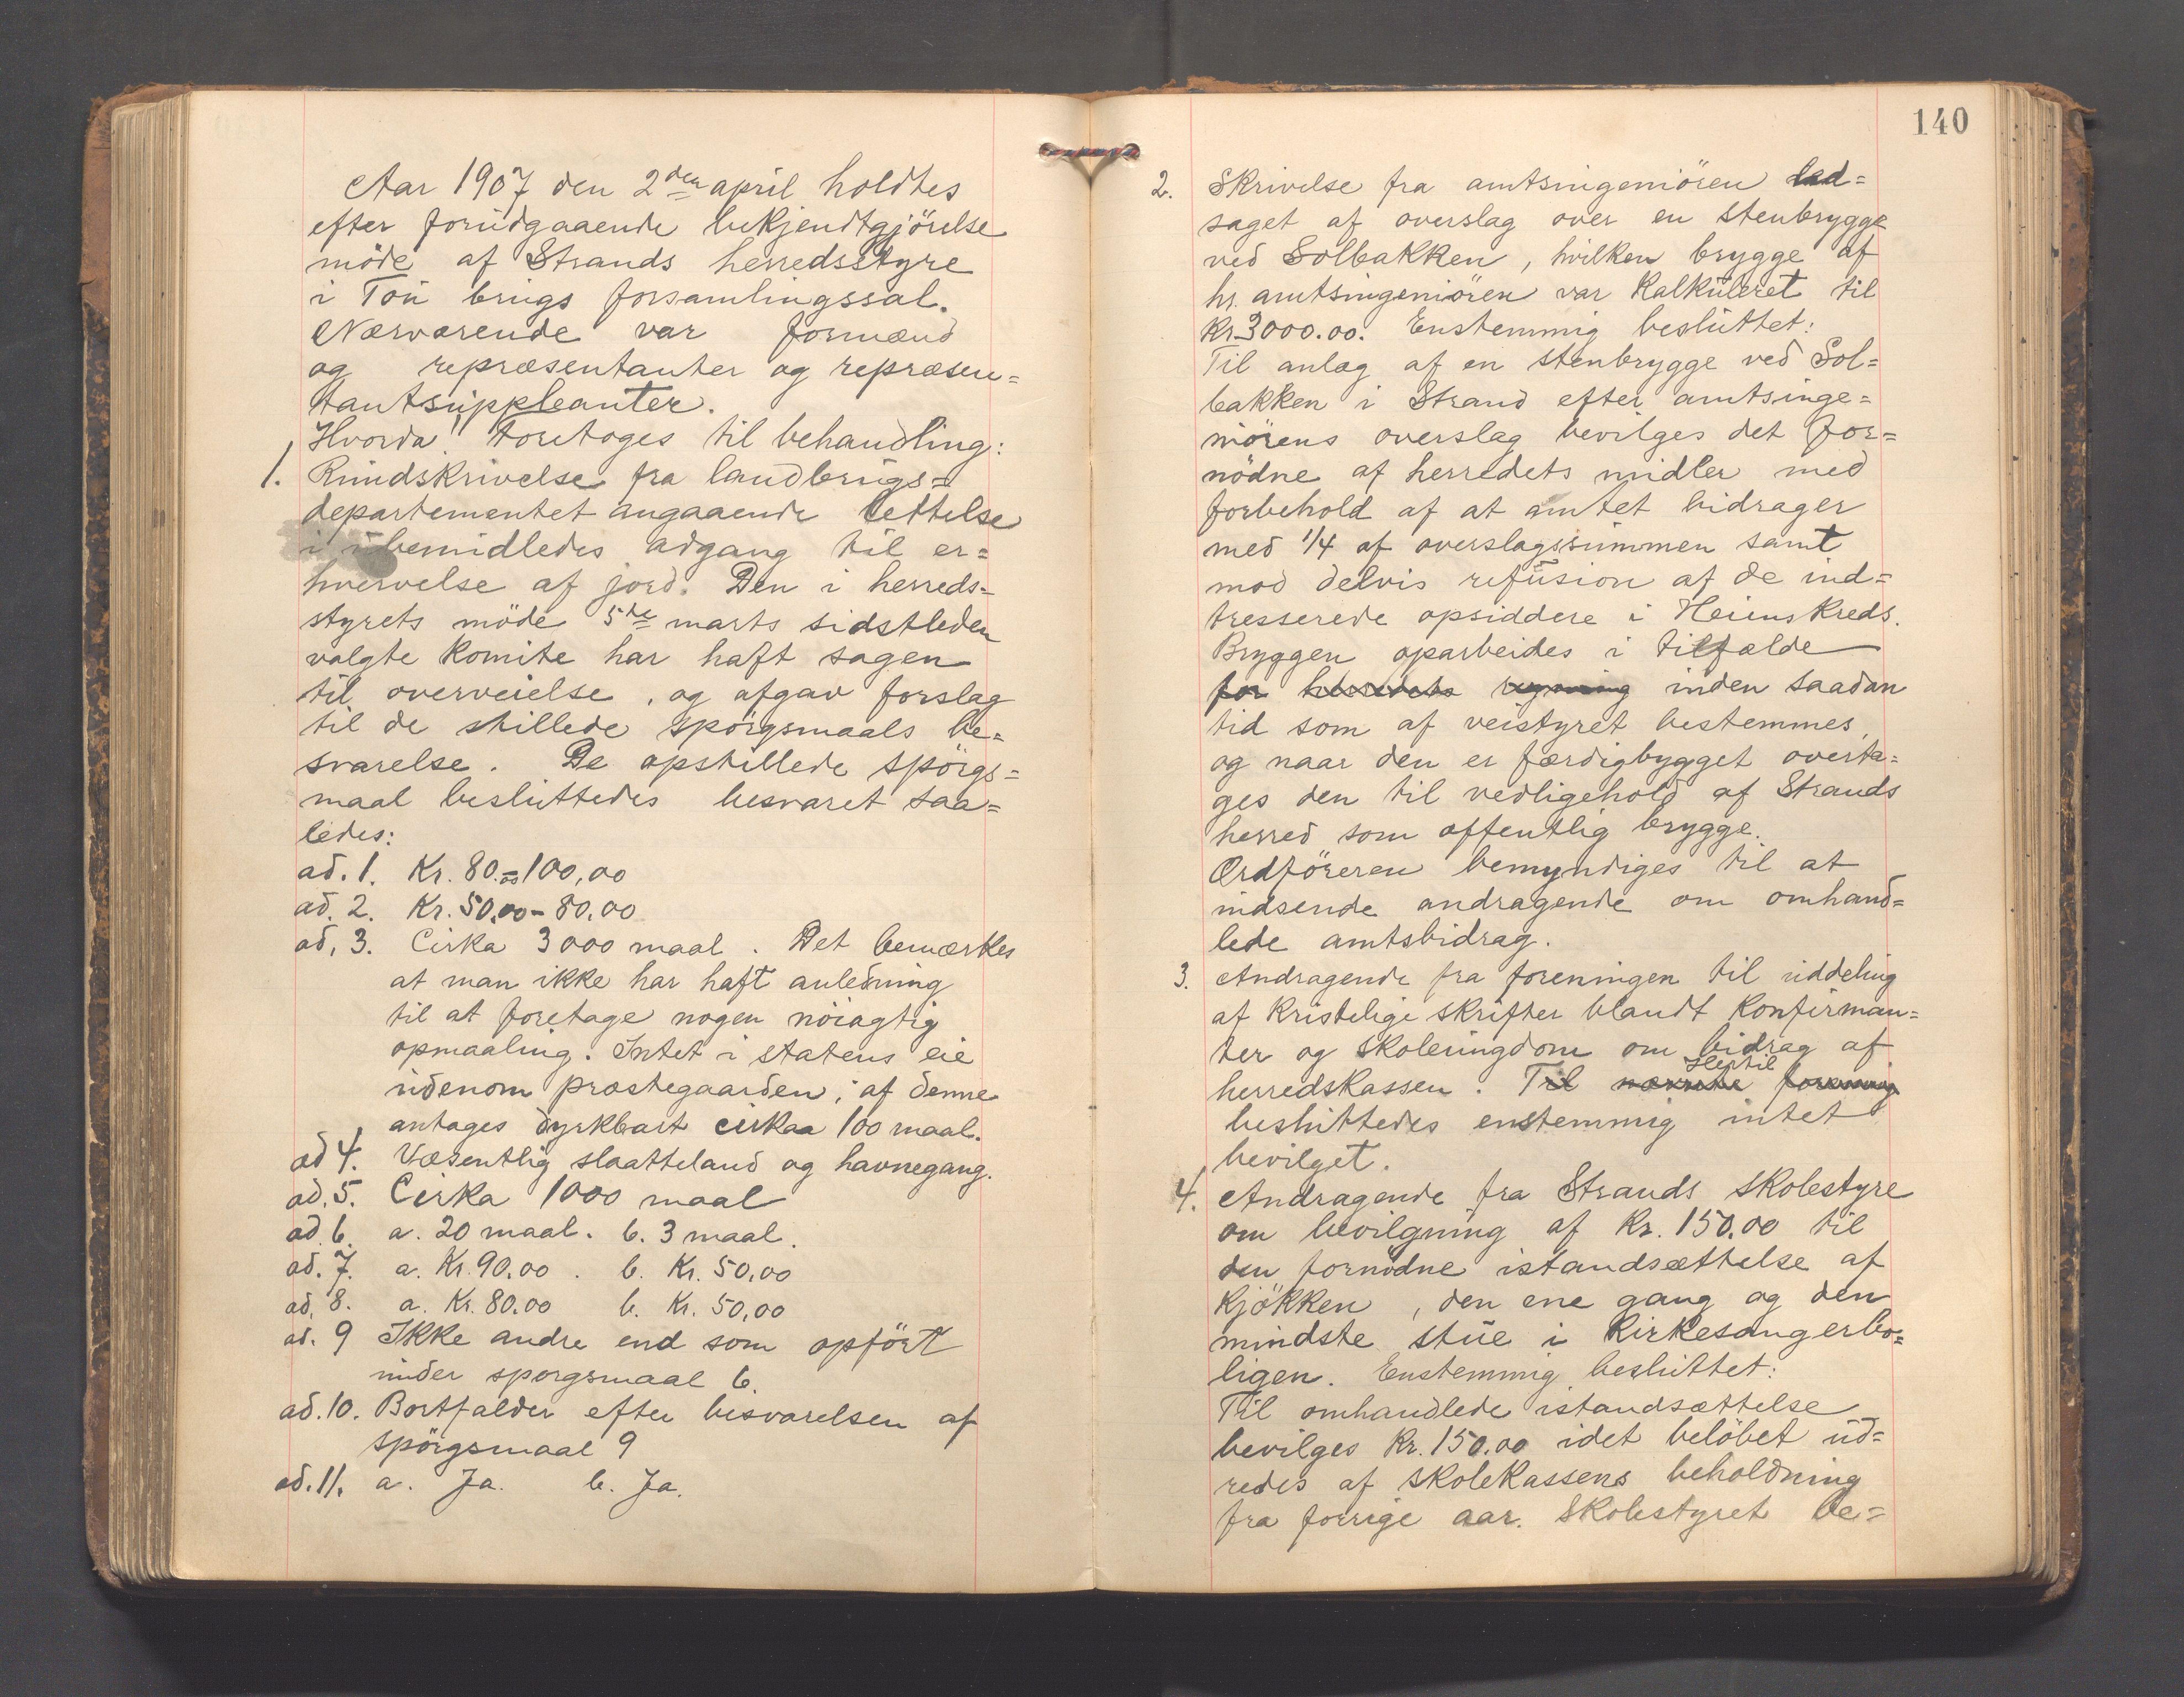 Aar 1907 den 2den april holdtes
efter forudgaaende bekjendtgjörelse
möde af Strands herredsstyre
i Tou brugs forsamlingssal.
Nærværende var formænd
og repræsentanter og repræsen=
tantsuppleanter.
Hvorda foretoges til behandling:
1. Rundskrivelse fra landbrugs=
departementet angaaende lettelse
i ubemidledes adgang til er=
hvervelse af jord. Den i herreds=
styrets möde 5te marts sidstleden
valgte komite har haft sagen
til overveielse, og afgav forslag
til de stillede spörgsmaals be=
svarelse. De opstillede spörgs=
maal besluttedes besvaret saa=
ledes:
ad. 1. Kr. 80.00=100,00
ad. 2. Kr. 50,00-80,00
ad. 3. Cirka 3000 maal. Det bemærkes
at man ikke har haft anledning
til at foretage nogen nöiagtig
opmaaling. Intet i statens eie
udenom præstegaarden; af denne
antages dyrkbart cirkaa 100 maal.
ad 4. Væsentlig slaatteland og havnegang.
ad. 5. Cirka 1000 maal
ad. 6. a. 20 maal. b. 3 maal.
ad. 7. a. Kr. 90.00. b. Kr. 50,00
ad. 8. a. Kr. 80.00 b. Kr. 50,00
ad. 9 Ikke andre end som opfört
under sporgsmaal 6.
ad. 10. Bortfalder efter besvarelsen af
spörgsmaal 9
ad. 11. a. Ja. b. Ja.
140
2. Skrivelse fra amtsingeniören led=
saget af overslag over en stenbrygge
ved Solbakken, hvilken brygge af
hr. amtsingeniören var kalkuleret til
Kr. 3000.00. Enstemmig besluttet:
Til anlæg af en stenbrygge ved Sol=
bakken i Strand efter amtsinge=
niörens overslag bevilges det for=
nödne af herredets midler med
forbehold af at amtet bidrager
med 1/4 af overslagssummen samt
mod delvis refusion af de ind=
tresserede opsiddere i Heiens Kreds.
Bryggen oparbeides i tilfælde
for herredets regning inden saadan
tid som af veistyret bestemmes,
og naar den er færdigbygget overta=
ges den til vedligehold af Strands
herred som offentlig brygge.
Ordföreren bemyndiges til at
indsende andragende om omhand=
lede amtsbidrag.
3. Andragende fra foreningen til uddeling
af kristelige skrifter blandt konfirman=
ter og skoleungdom om bidrag af
herredskassen. Til nævnte forening
Hertil
besluttedes enstemmig intet
bevilget.
4. Andragende fra Strands skolestyre
om bevilgning af Kr. 150.00 til
den fornödne istandsættelse af
kjökken, den ene gang og den
mindste stue i kirkesangerbo=
ligen. Enstemmig besluttet:
Til omhandlede istandsættelse
bevilges Kr. 150.00 idet belöbet ud=
redes af skolekassens beholdning
fra forrige aar. Skolestyret be=